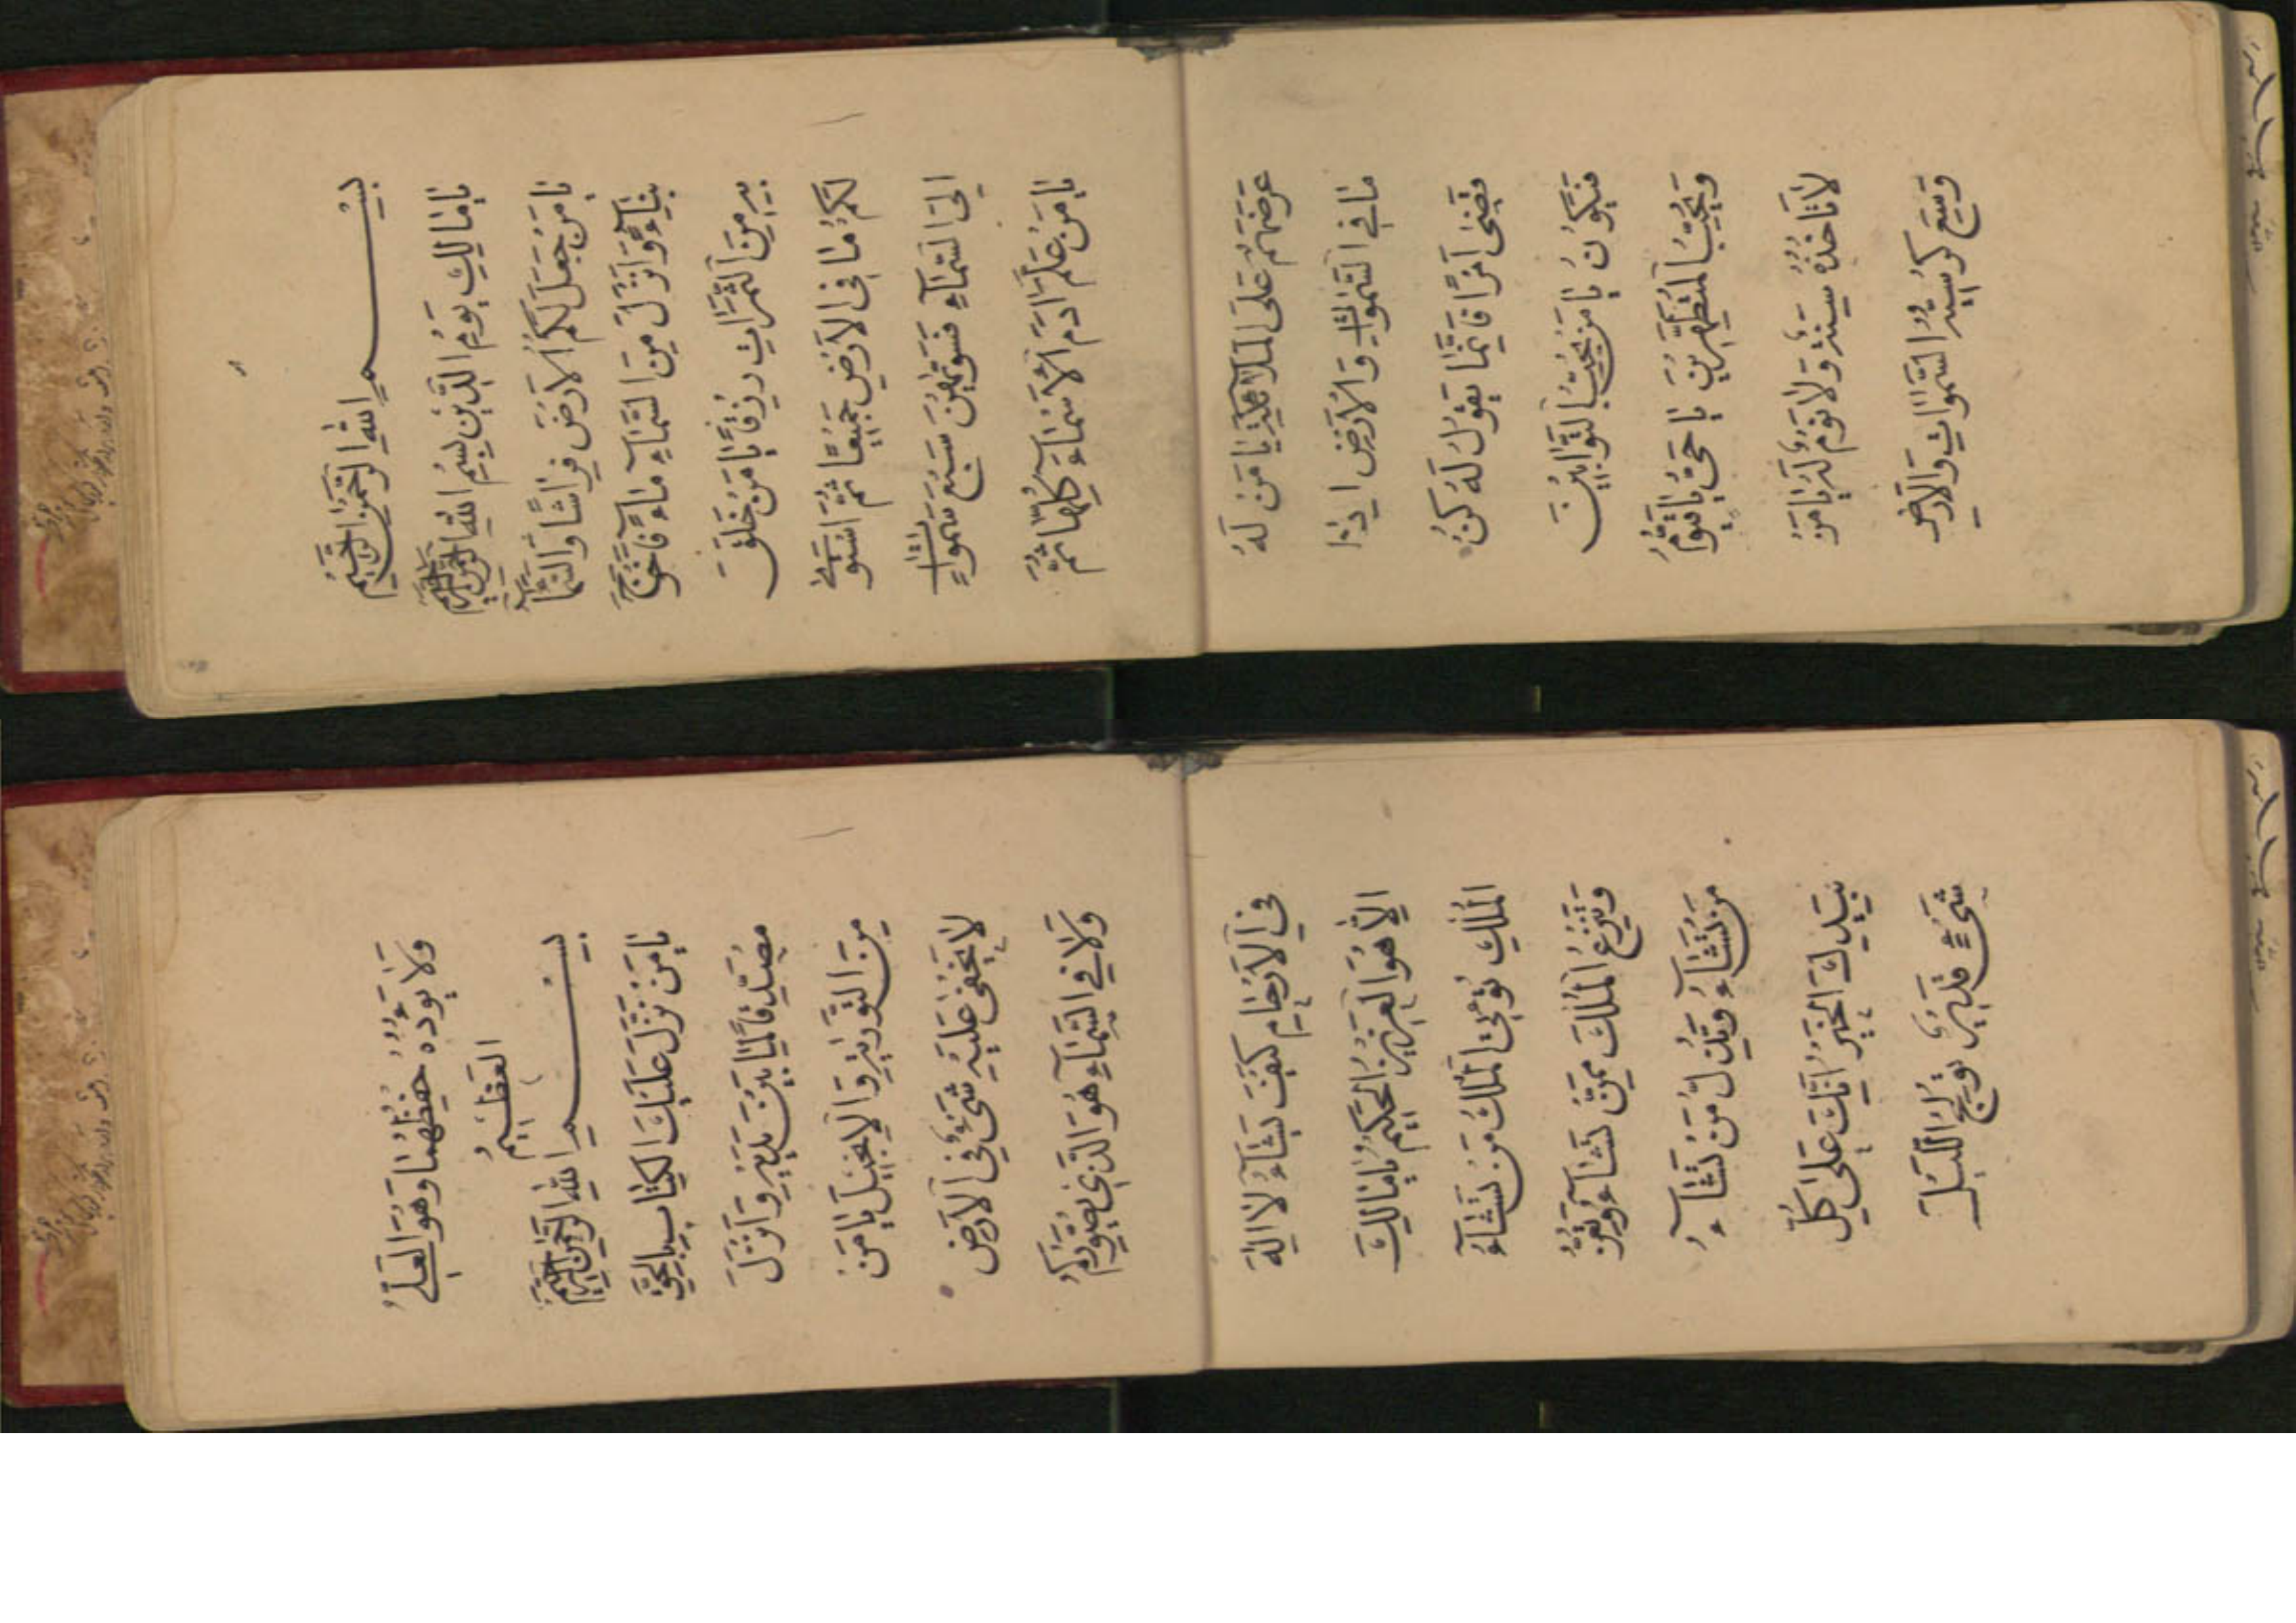 بِسْمِ اللهِ الرَّحْمٰنِ الرَّحِيْمِ
يَا مَالِكِ يَوْمِ الدِّيْنِ بِسْمِ اللهِ الرَّحْمٰنِ الرَّحِيْمِ
يَا مَنْ جَعَلَ لَكُمُ الْاَرْضَ فِرَاشًا وَالسَّمَآءَ
بِنَآءً وَاَنْزَلَ مِنَ السَّمَآءِ مَآءً فَاَخْرَجَ
بِهِ مِنَ الثَّمَرَاتِ رِزْقًا يَا مَنْ خَلَقَ
لَكُمْ مَا فِى الْاَرْضِ جَمِيْعًا ثُمَّ اسْتَوٰى
اِلَى السَّمَآءِ فَسَوّٰيهُنَّ سَبْعَ سَمٰوَاتٍ
يَا مَنْ عَلَّمَ اٰدَمَ الْاَسْمَآءَ كُلَّهَا ثُمَّ
عَرَضَهُمْ عَلَى الْمَلٰٓئِكَةِ يَا مَنْ لَهُ
مَا فِى السَّمٰوَاتِ وَالْاَرْضِ اِذَا
قَضٰى اَمْرًا فَاِنَّمَا يَقُوْلُ لَهُ كُنْ
فَيَكُوْنُ يَا مَنْ يُحِبُّ التَّوَّابِيْنَ
وَيُحِبُّ الْمُتَطَهِّرِيْنَ يَا حَىُّ يَا قَيُّوْمُ
لَا تَأْخُذُهُ سِنَةٌ وَلَا نَوْمٌ لَهُ يَا مَنْ
وَسِعَ كُرْسِيُّهُ السَّمٰوَاتِ وَالْاَرْضَ
وَلَا يَؤُدُهُ حِفْظُهُمَا وَهُوَ الْعَلِىُّ
الْعَظِيْمُ
بِسْمِ اللهِ الرَّحْمٰنِ الرَّحِيْمِ
يَا مَنْ نَزَّلَ عَلَيْكَ الْكِتَابَ بِالْحَقِّ
مُصَدِّقًا لِمَا بَيْنَ يَدَيْهِ وَاَنْزَلَ
مِنَ التَّوْرٰيةِ وَالْاِنْجِيْلَ يَا مَنْ
لَا يَخْفٰى عَلَيْهِ شَىْءٌ فِى الْاَرْضِ
وَلَا فِى السَّمَآءِ هُوَ الَّذِى يُصَوِّرُكُمْ
فِى الْاَرْحَامِ كَيْفَ يَشَآءُ لَا اِلٰهَ
اِلَّا هُوَ الْعَزِيْزُ الْحَكِيْمُ يَا مَالِكَ
الْمُلْكِ تُؤْتِى الْمُلْكَ مَنْ تَشَآءُ
وَتَنْزِعُ الْمُلْكَ مِمَّنْ تَشَآءُ وَتُعِزُّ
مَنْ تَشَآءُ وَتُذِلُّ مَنْ تَشَآءُ
بِيَدِكَ الْخَيْرُ اِنَّكَ عَلٰى كُلِّ
شَىْءٍ قَدِيْرٌ تُوْلِجُ اللَّيْلَ